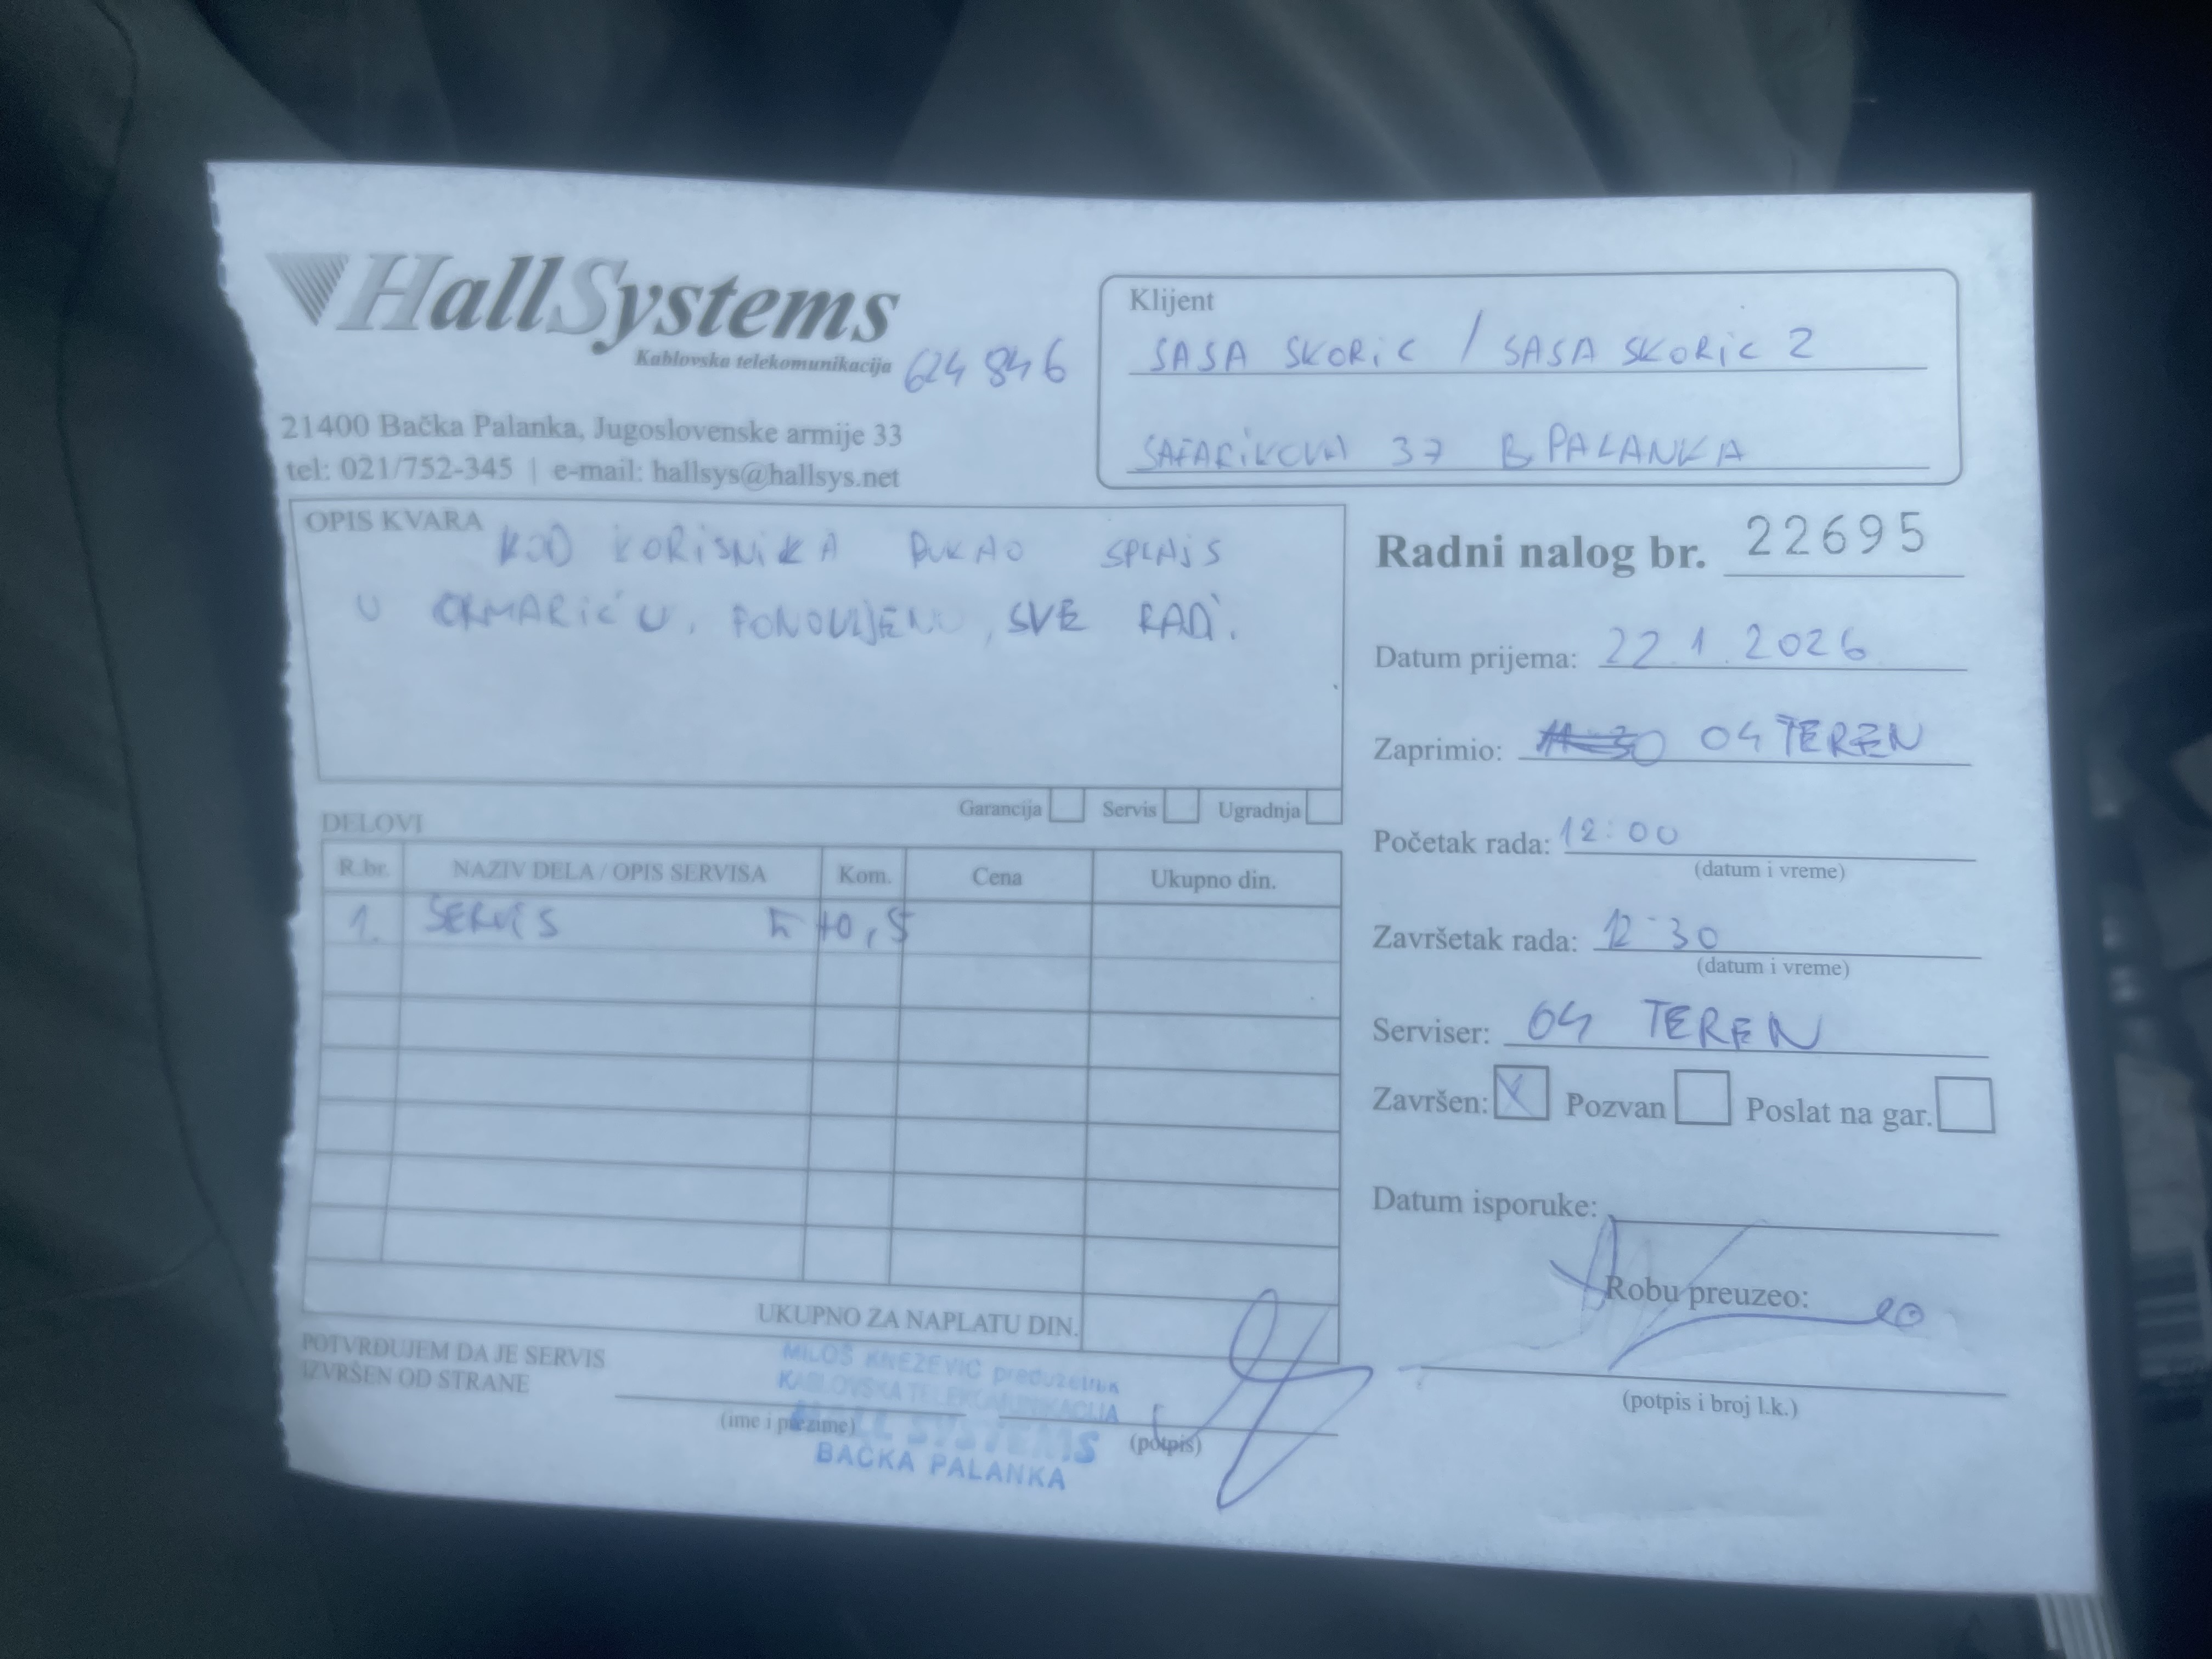 HallSystems
Kablovska telekomunikacija
624 846
21400 Bačka Palanka, Jugoslovenske armije 33
tel: 021/752-345 | e-mail: hallsys@hallsys.net
Klijent
SASA SKORIC / SASA SKORIC 2
SAFARIKOVA 37 B. PALANKA
OPIS KVARA
KOD KORISNIKA PUKAO SPLAJS
U ORMARIĆU. PONOVLJENO, SVE RADI.
Garancija Servis Ugradnja
DELOVI
R.br. NAZIV DELA / OPIS SERVISA Kom. Cena Ukupno din.
1. SERVIS 0,5
UKUPNO ZA NAPLATU DIN.
POTVRĐUJEM DA JE SERVIS
IZVRŠEN OD STRANE
(ime i prezime)
(potpis)
MILOŠ KNEŽEVIĆ preduzetnik
KABLOVSKA TELEKOMUNIKACIJA
HALL SYSTEMS
BAČKA PALANKA
Radni nalog br. 22695
Datum prijema: 22.1.2026
Zaprimio: 04 TEREN
Početak rada: 12:00
(datum i vreme)
Završetak rada: 12:30
(datum i vreme)
Serviser: 04 TEREN
Završen: X Pozvan Poslat na gar.
Datum isporuke:
Robu preuzeo:
(potpis i broj l.k.)